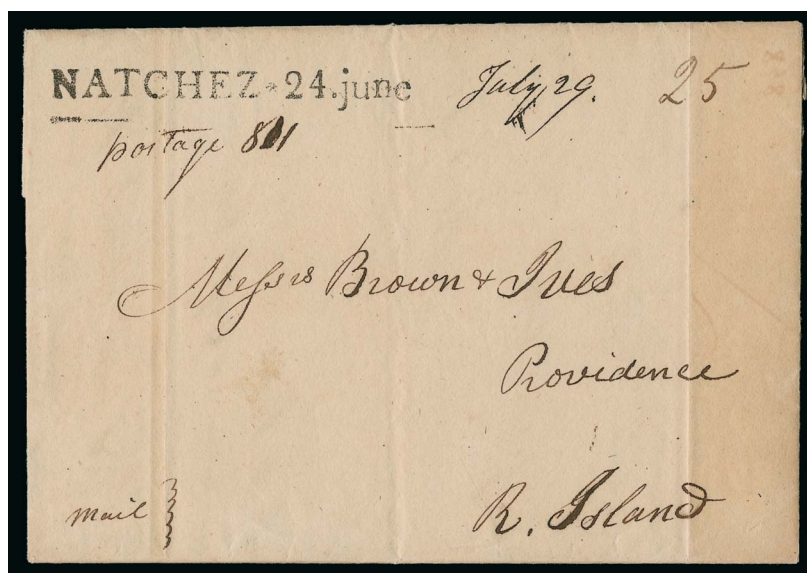 NATCHEZ * 24. june July 29. 25
postage
Messrs Brown & Ives
Providence
R. Island
mail